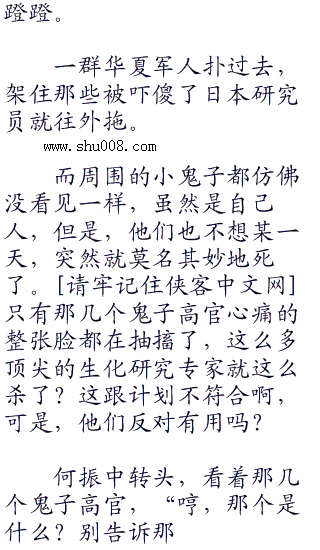 蹬蹬。
一群华夏军人扑过去，
架住那些被吓傻了日本研究
员就往外拖。
www.shu008.com
而周围的小鬼子都仿佛
没看见一样，虽然是自己
人，但是，他们也不想某一
天，突然就莫名其妙地死
了。[请牢记住侠客中文网]
只有那几个鬼子高官心痛的
整张脸都在抽搐了，这么多
顶尖的生化研究专家就这么
杀了？这跟计划不符合啊，
可是，他们反对有用吗？
何振中转头，看着那几
个鬼子高官，“哼，那个是
什么？别告诉那